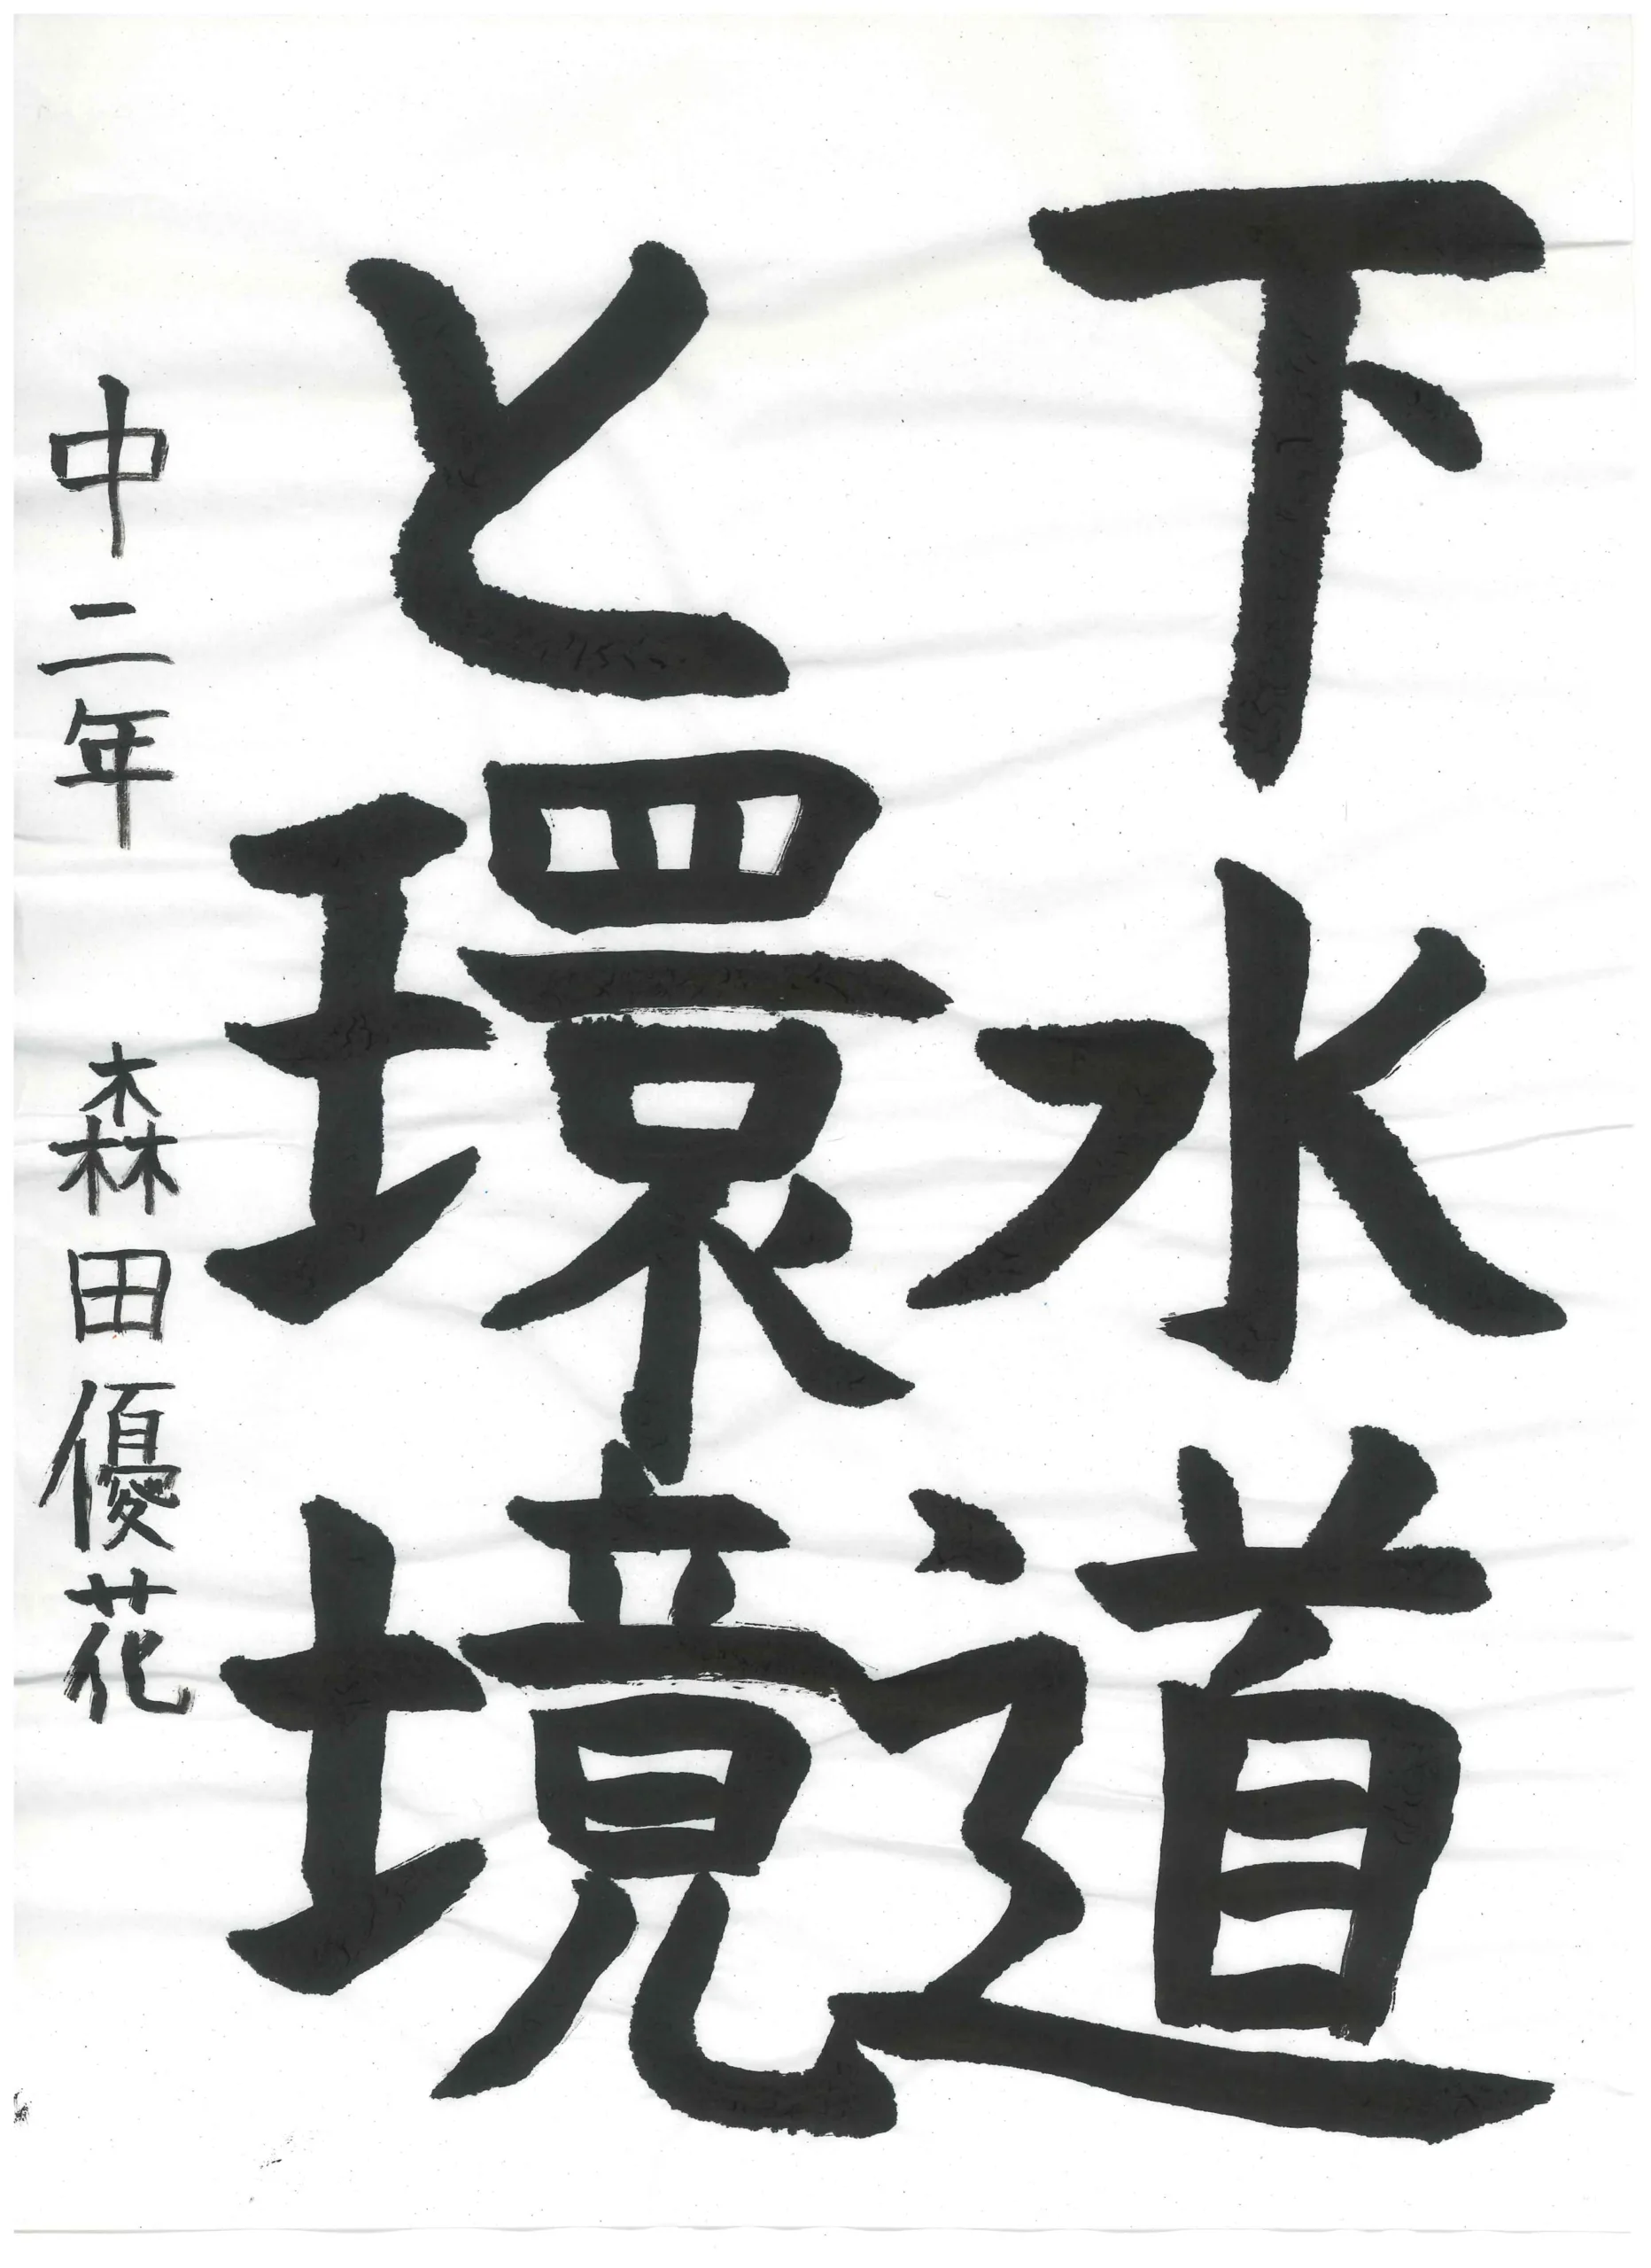 下水道
と環境
中二年 森田優花